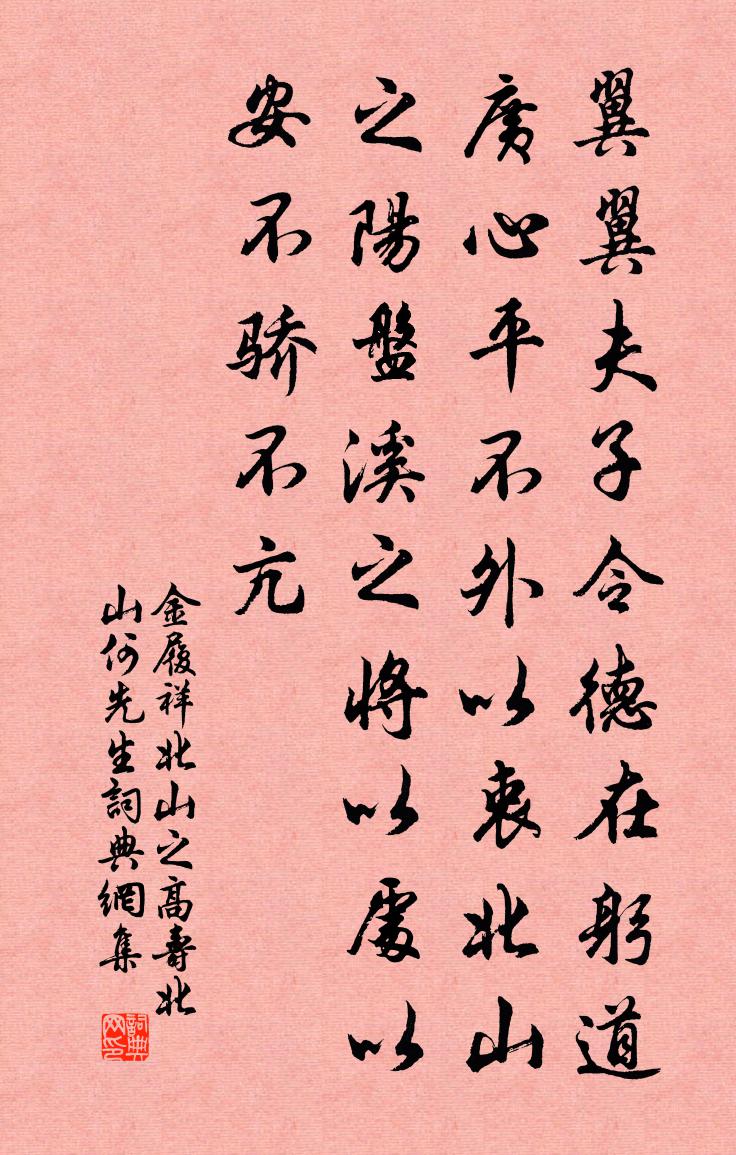 翼翼夫子令德在躬道
廣心平不外以衷北山
之陽盤溪之將以處以
安不骄不亢
金履祥北山之高壽北
山何先生詞典網集
詞典网印